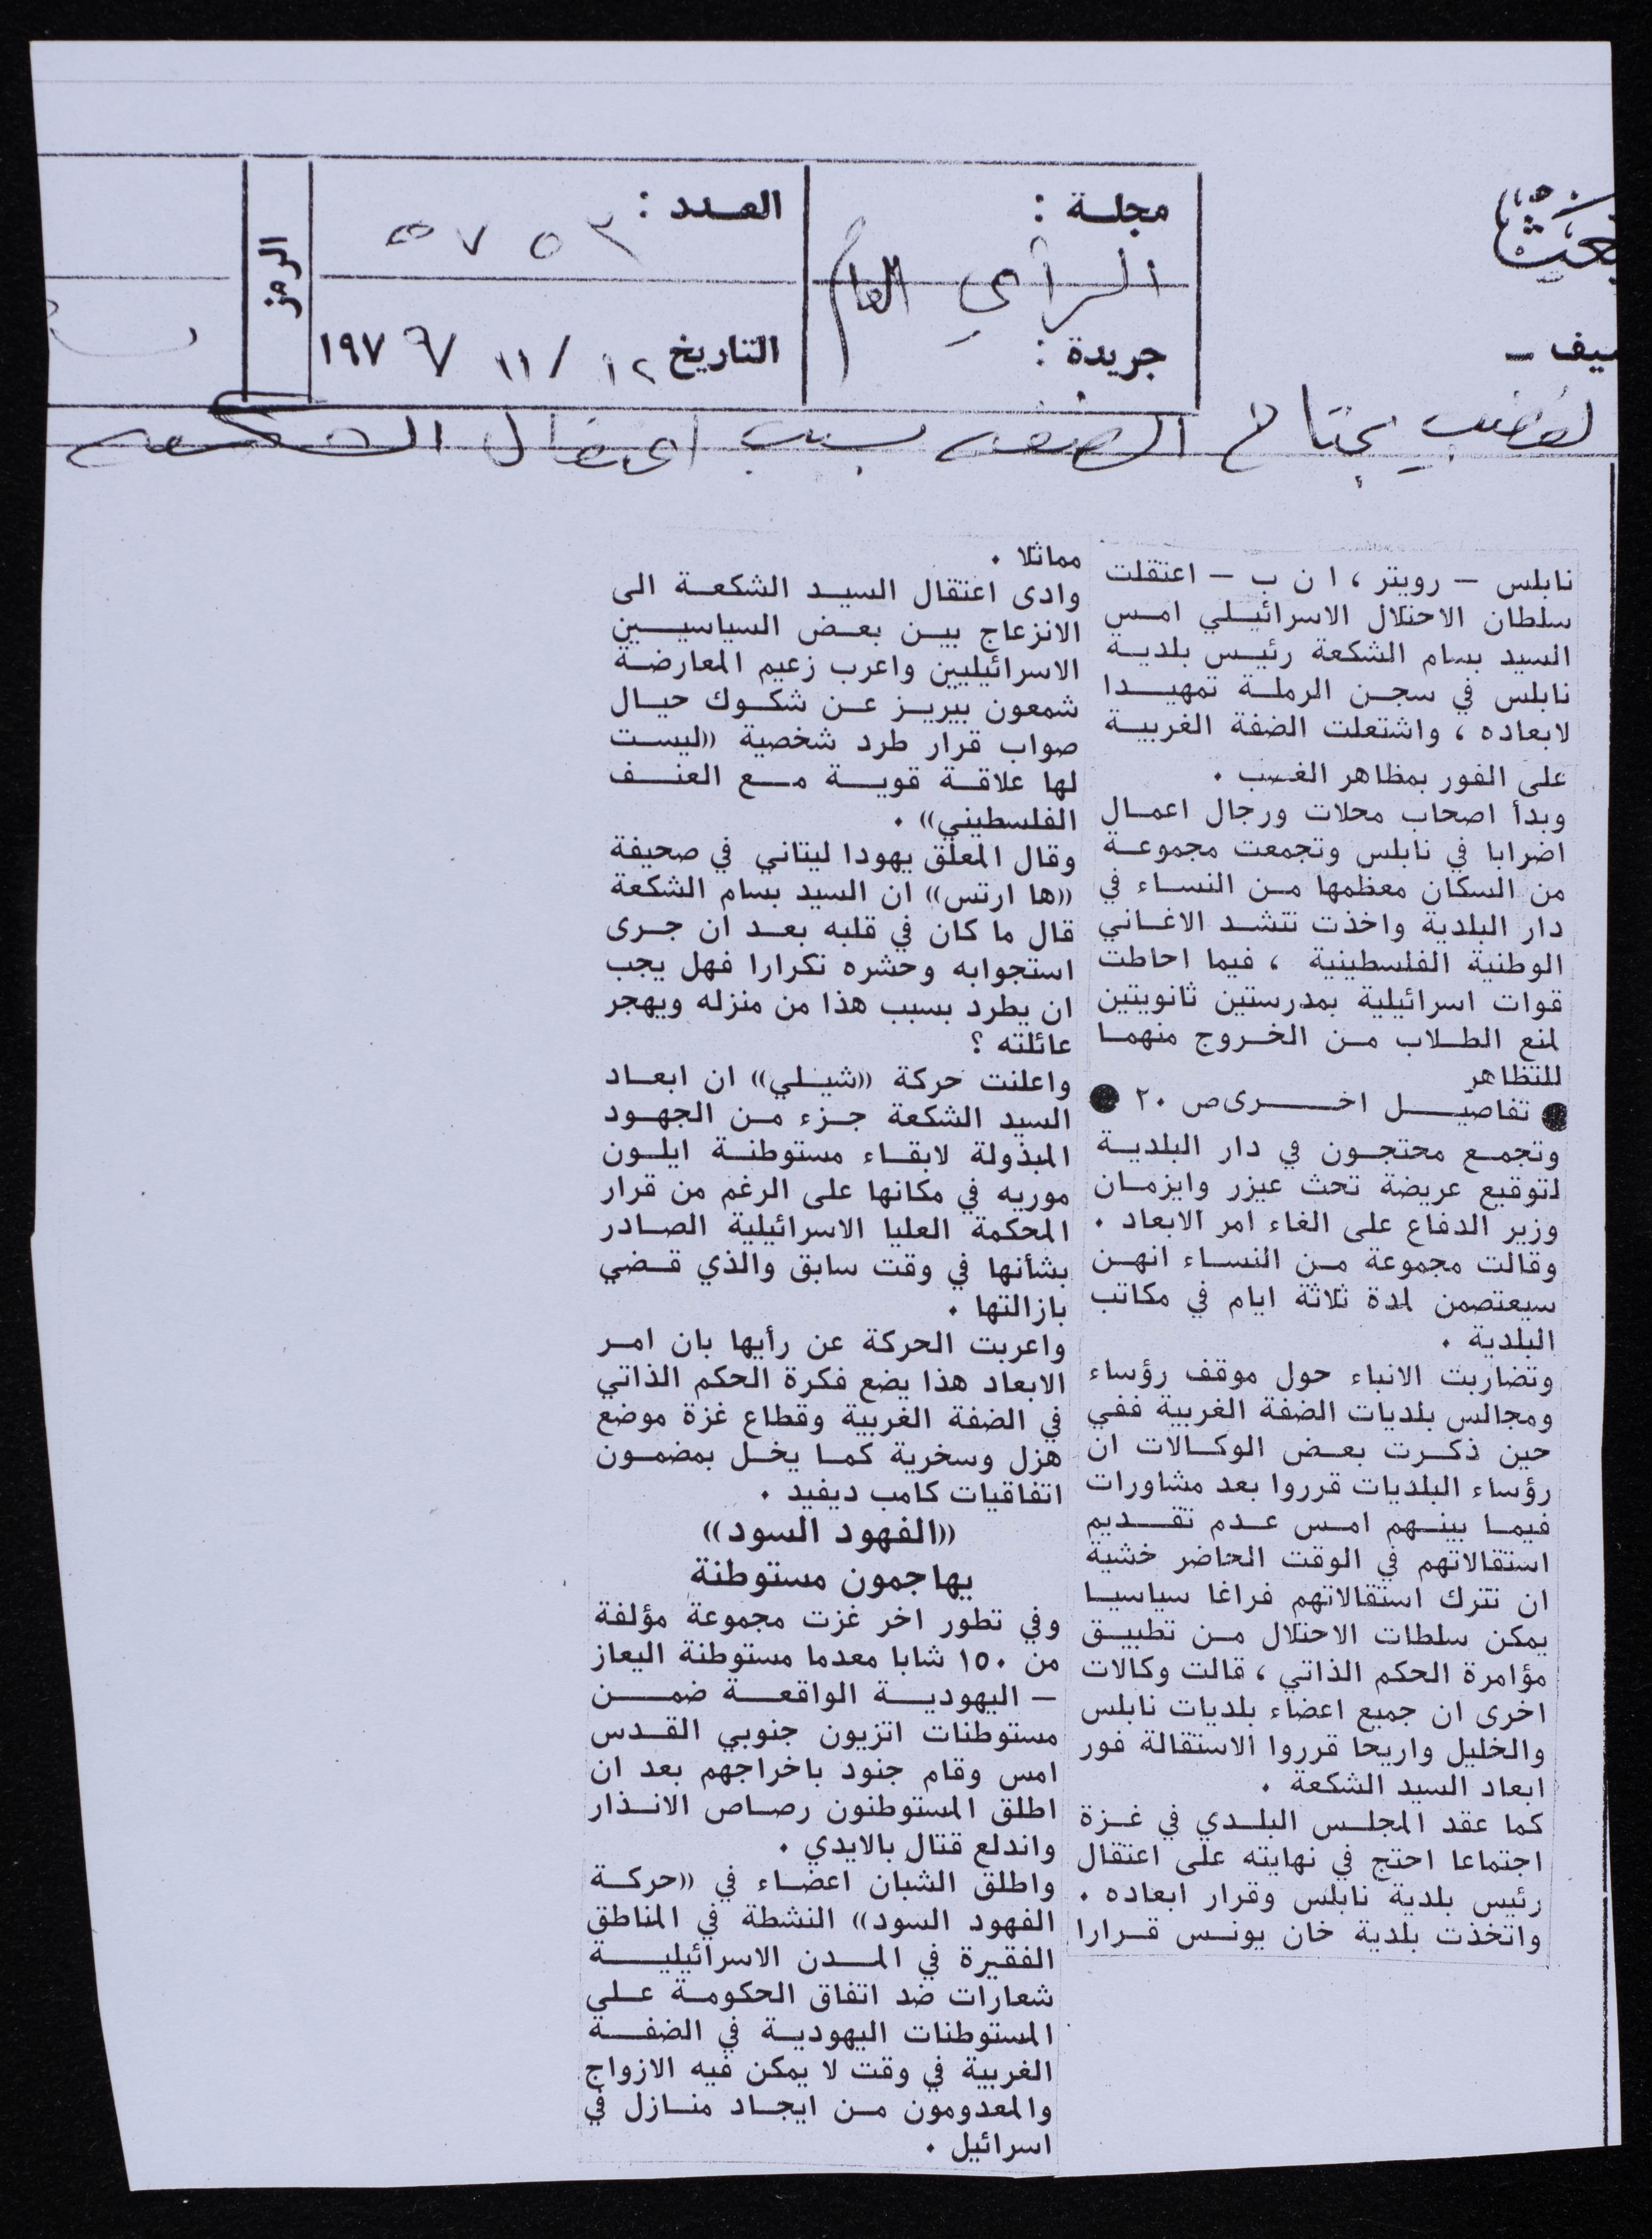 مجلة :
الرأي العام
جريدة :
العدد :
٥٧٥٢
التاريخ ١٢ / ١١ ١٩٧٩
الرمز
يف -
الغضب يجتاح الضفة بسبب اعتقال الشكعه
نابلس - رويتر ، ا ن ب - اعتقلت
سلطان الاحتلال الاسرائيلي امس
السيد بسام الشكعة رئيس بلدية
نابلس في سجن الرملة تمهيدا
لابعاده ، واشتعلت الضفة الغربية
على الفور بمظاهر الغضب .
وبدأ اصحاب محلات ورجال اعمال
اضرابا في نابلس وتجمعت مجموعة
من السكان معظمها من النساء في
دار البلدية واخذت تنشد الاغاني
الوطنية الفلسطينية ، فيما احاطت
قوات اسرائيلية بمدرستين ثانويتين
لمنع الطلاب من الخروج منهما
للتظاهر
● تفاصيل اخرى ص ٢٠ ●
وتجمع محتجون في دار البلدية
لتوقيع عريضة تحث عيزر وايزمان
وزير الدفاع على الغاء امر الابعاد .
وقالت مجموعة من النساء انهن
سيعتصمن لمدة ثلاثة ايام في مكاتب
البلدية .
وتضاربت الانباء حول موقف رؤساء
ومجالس بلديات الضفة الغربية ففي
حين ذكرت بعض الوكالات ان
رؤساء البلديات قرروا بعد مشاورات
فيما بينهم امس عدم تقديم
استقالاتهم في الوقت الحاضر خشية
ان تترك استقالاتهم فراغا سياسيا
يمكن سلطات الاحتلال من تطبيق
مؤامرة الحكم الذاتي ، قالت وكالات
اخرى ان جميع اعضاء بلديات نابلس
والخليل واريحا قرروا الاستقالة فور
ابعاد السيد الشكعة .
كما عقد المجلس البلدي في غزة
اجتماعا احتج في نهايته على اعتقال
رئيس بلدية نابلس وقرار ابعاده .
واتخذت بلدية خان يونس قرارا
مماثلا .
وادى اعتقال السيد الشكعة الى
الانزعاج بين بعض السياسيين
الاسرائيليين واعرب زعيم المعارضة
شمعون بيريز عن شكوك حيال
صواب قرار طرد شخصية ((ليست
لها علاقة قوية مع العنف
الفلسطيني)) .
وقال المعلق يهودا ليتاني في صحيفة
((ها ارتس)) ان السيد بسام الشكعة
قال ما كان في قلبه بعد ان جرى
استجوابه وحشره تكرارا فهل يجب
ان يطرد بسبب هذا من منزله ويهجر
عائلته ؟
واعلنت حركة ((شيلي)) ان ابعاد
السيد الشكعة جزء من الجهود
المبذولة لابقاء مستوطنة ايلون
موريه في مكانها على الرغم من قرار
المحكمة العليا الاسرائيلية الصادر
بشأنها في وقت سابق والذي قضي
بازالتها .
واعربت الحركة عن رأيها بان امر
الابعاد هذا يضع فكرة الحكم الذاتي
في الضفة الغربية وقطاع غزة موضع
هزل وسخرية كما يخل بمضمون
اتفاقيات كامب ديفيد .
((الفهود السود))
يهاجمون مستوطنة
وفي تطور اخر غزت مجموعة مؤلفة
من ١٥٠ شابا معدما مستوطنة اليعاز
- اليهودية الواقعة ضمن
مستوطنات اتزيون جنوبي القدس
امس وقام جنود باخراجهم بعد ان
اطلق المستوطنون رصاص الانذار
واندلع قتال بالايدي .
واطلق الشبان اعضاء في ((حركة
الفهود السود)) النشطة في المناطق
الفقيرة في المدن الاسرائيلية
شعارات ضد اتفاق الحكومة على
المستوطنات اليهودية في الضفة
الغربية في وقت لا يمكن فيه الازواج
والمعدومون من ايجاد منازل في
اسرائيل .